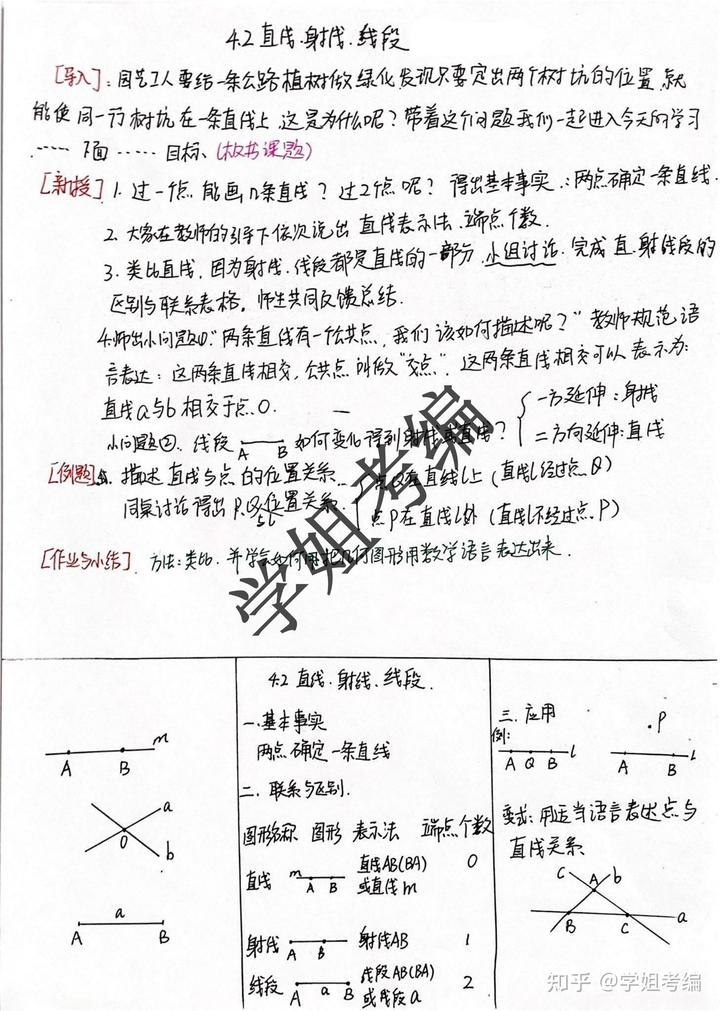 4.2 直线.射线.线段
[导入]:园艺工人要给一条公路植树做绿化,发现只要定出两个树坑的位置,就
能使同一行树坑在一条直线上,这是为什么呢?带着这个问题我们一起进入今天的学习
…… 下面 …… 目标、(板书课题)
[新授] 1. 过一个点能画n条直线?过2个点呢?得出基本事实.:两点确定一条直线.
2. 大家在教师的引导下依次说出 直线表示法、端点个数.
3. 类比直线,因为射线.线段都是直线的一部分,小组讨论.完成直.射线段的
区别与联系表格,师生共同反馈总结.
4.师出小问题①."两条直线有一个公共点,我们该如何描述呢?"教师规范语
言表达:这两条直线相交,公共点叫做"交点",这两条直线相交可以表示为:
直线a与b相交于点O.
小问题②.线段 A B 如何变化得到射线或直线?
一方延伸:射线
二方向延伸:直线
[例题] 描述直线与点的位置关系
同桌讨论得出P、Q位置关系
点Q在直线l上(直线l经过点Q)
点P在直线l外(直线l不经过点P)
[作业与小结].方法:类比.并学会如何用把几何图形用数学语言表达出来.
学姐考编
A B m
a
O
b
a
A B
4.2 直线.射线.线段.
一.基本事实
两点确定一条直线
二.联系与区别.
图形名称 图形 表示法 端点个数
直线 m A B 直线AB(BA) 0
或直线m
射线 A B 射线AB 1
线段 A a B 线段AB(BA) 2
或线段a
三.应用
例:
A Q B l
P
A B l
变式:用适当语言表达点与
直线关系
c A b
B C a
知乎 @学姐考编